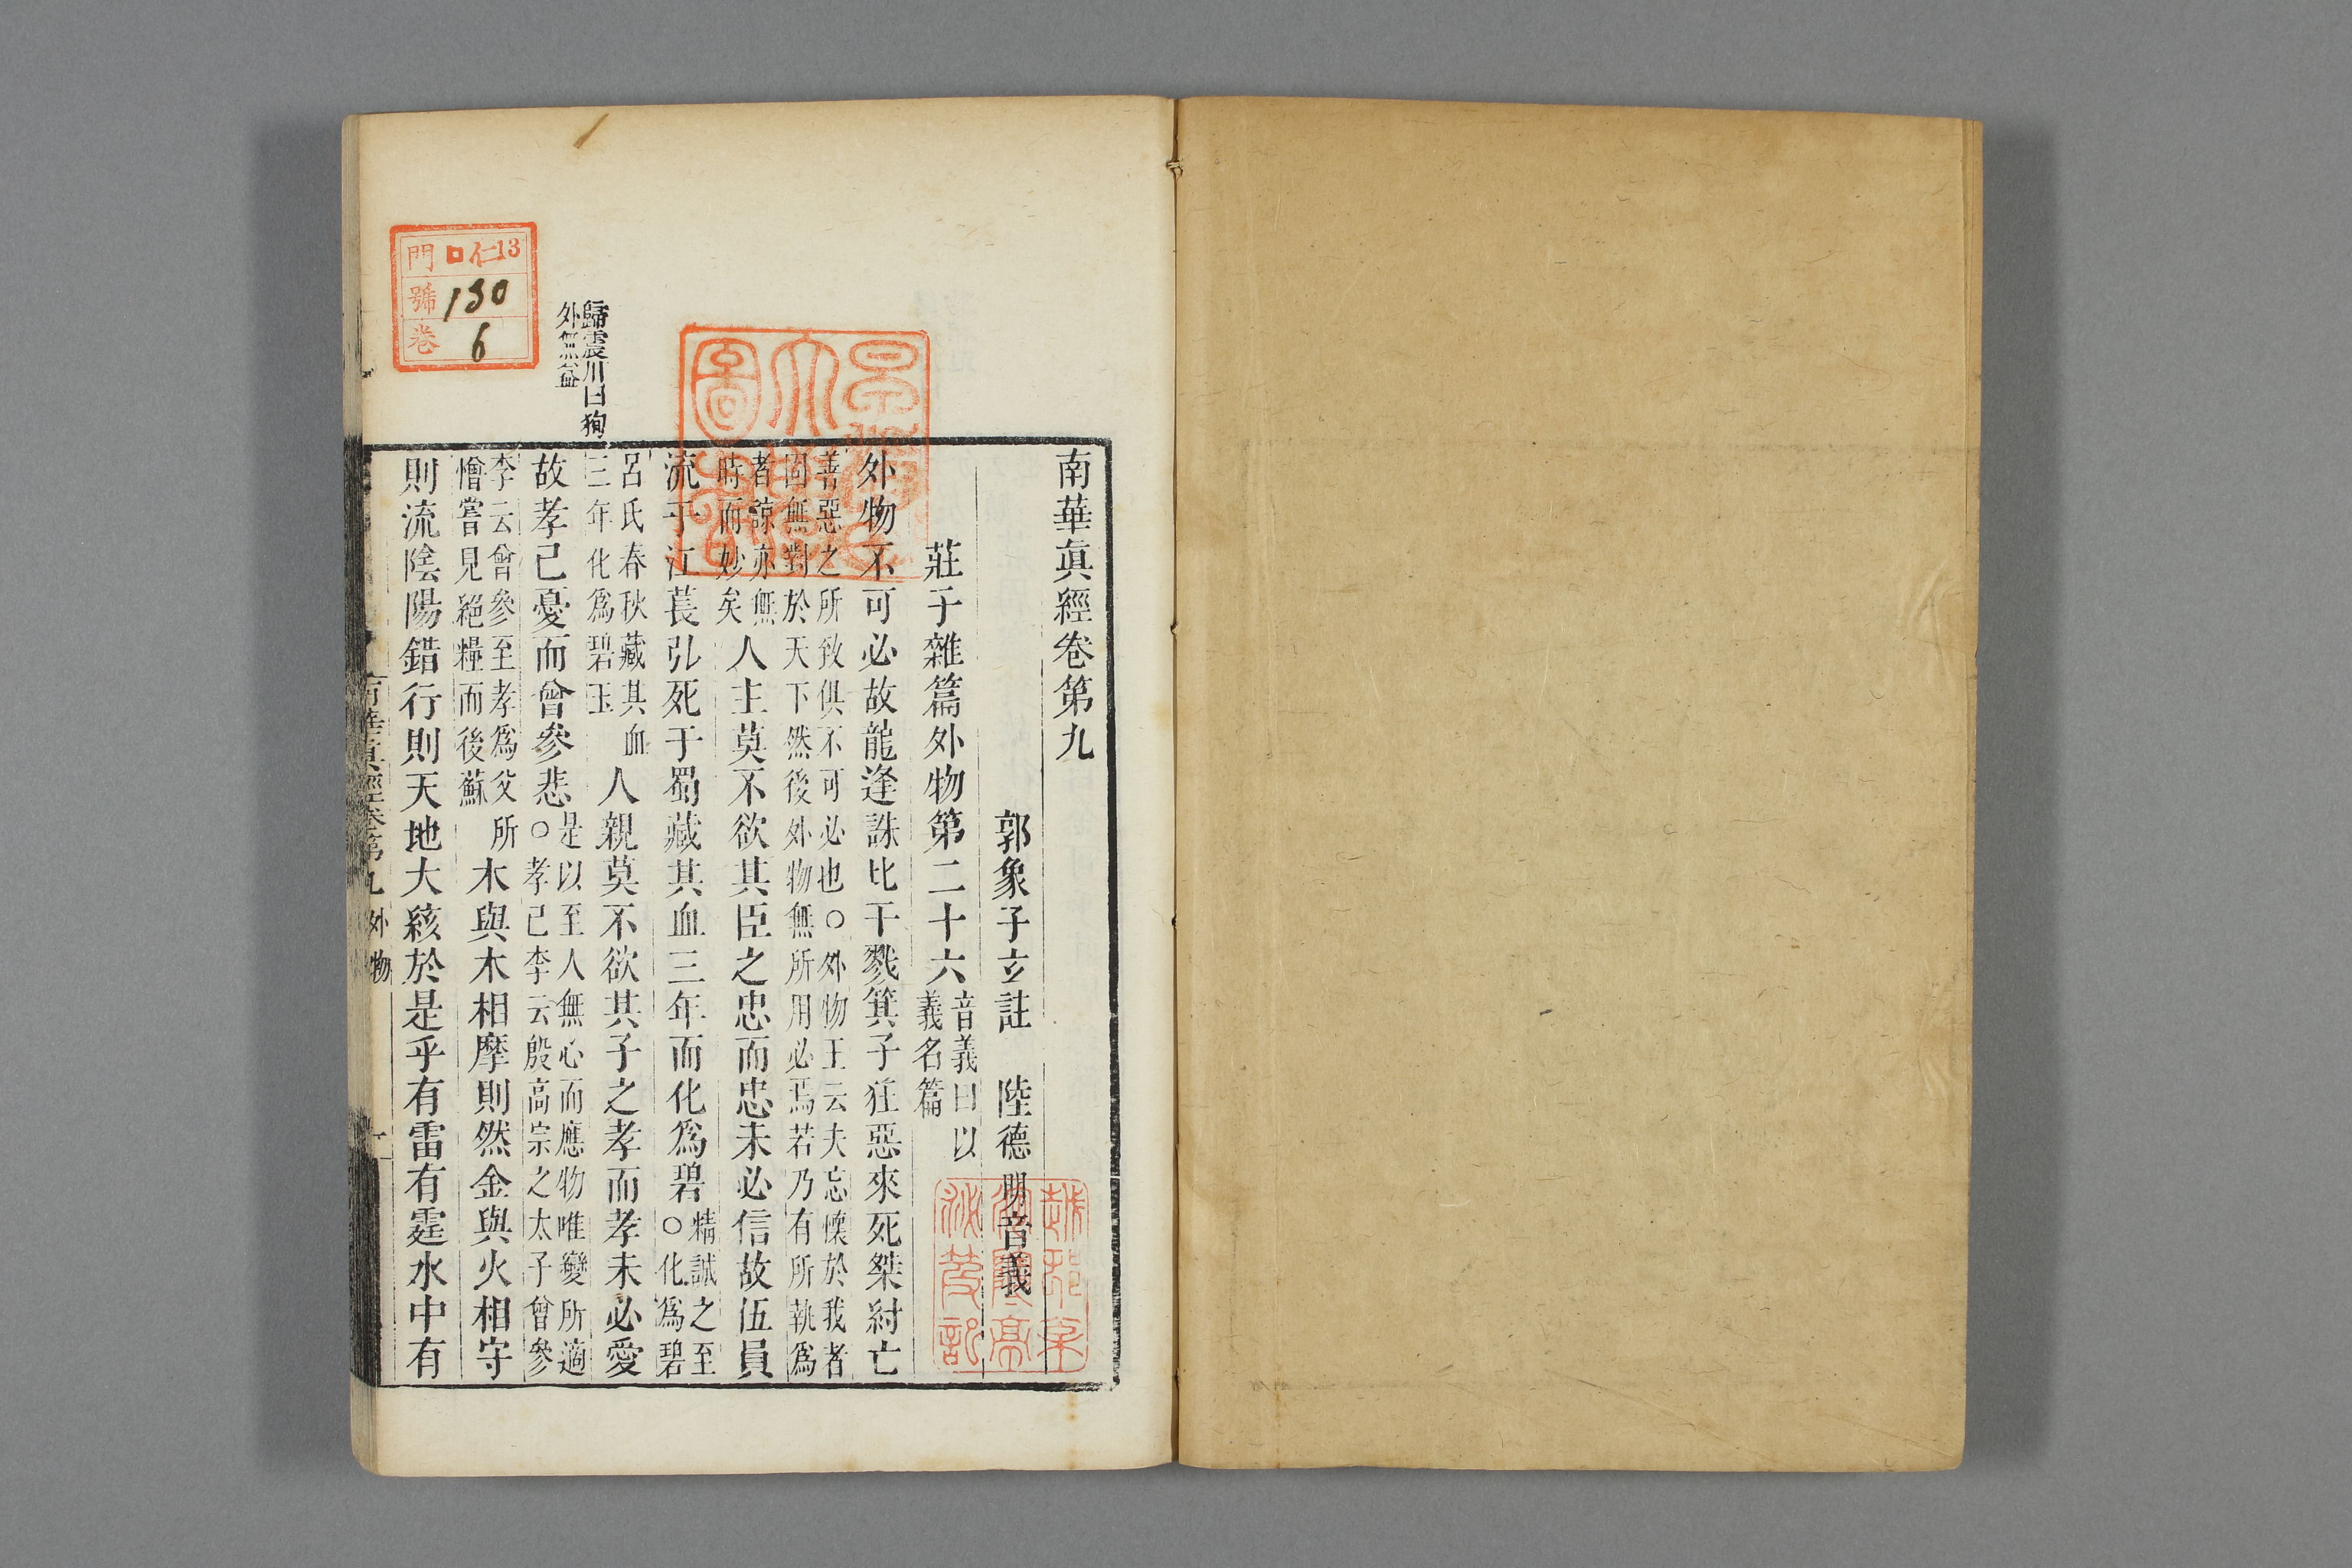 南華眞經卷第九
郭象子玄註 陸德明音義
莊子雜篇外物第二十六音義曰以義名篇
外物不可必故龍逢誅比干戮箕子狂惡來死桀紂亡
善惡之所致俱不可必也○外物王云夫忘懷於我者
固無對於天下然後外物無所用必焉若乃有所執爲
者諒亦無時而妙矣人主莫不欲其臣之忠而忠未必信故伍員
流于江萇弘死于蜀藏其血三年而化爲碧精誠之至○化爲碧
呂氏春秋藏其血三年化爲碧玉人親莫不欲其子之孝而孝未必愛
故孝己憂而曾參悲是以至人無心而應物唯變所適○孝己李云殷高宗之太子曾參
李云曾參至孝爲父所憎嘗見絕糧而後蘇木與木相摩則然金與火相守
則流陰陽錯行則天地大絯於是乎有雷有霆水中有
歸震川曰狥
外無益
南華眞經卷第九 外物 一
門 口仁13
號 130
卷 6